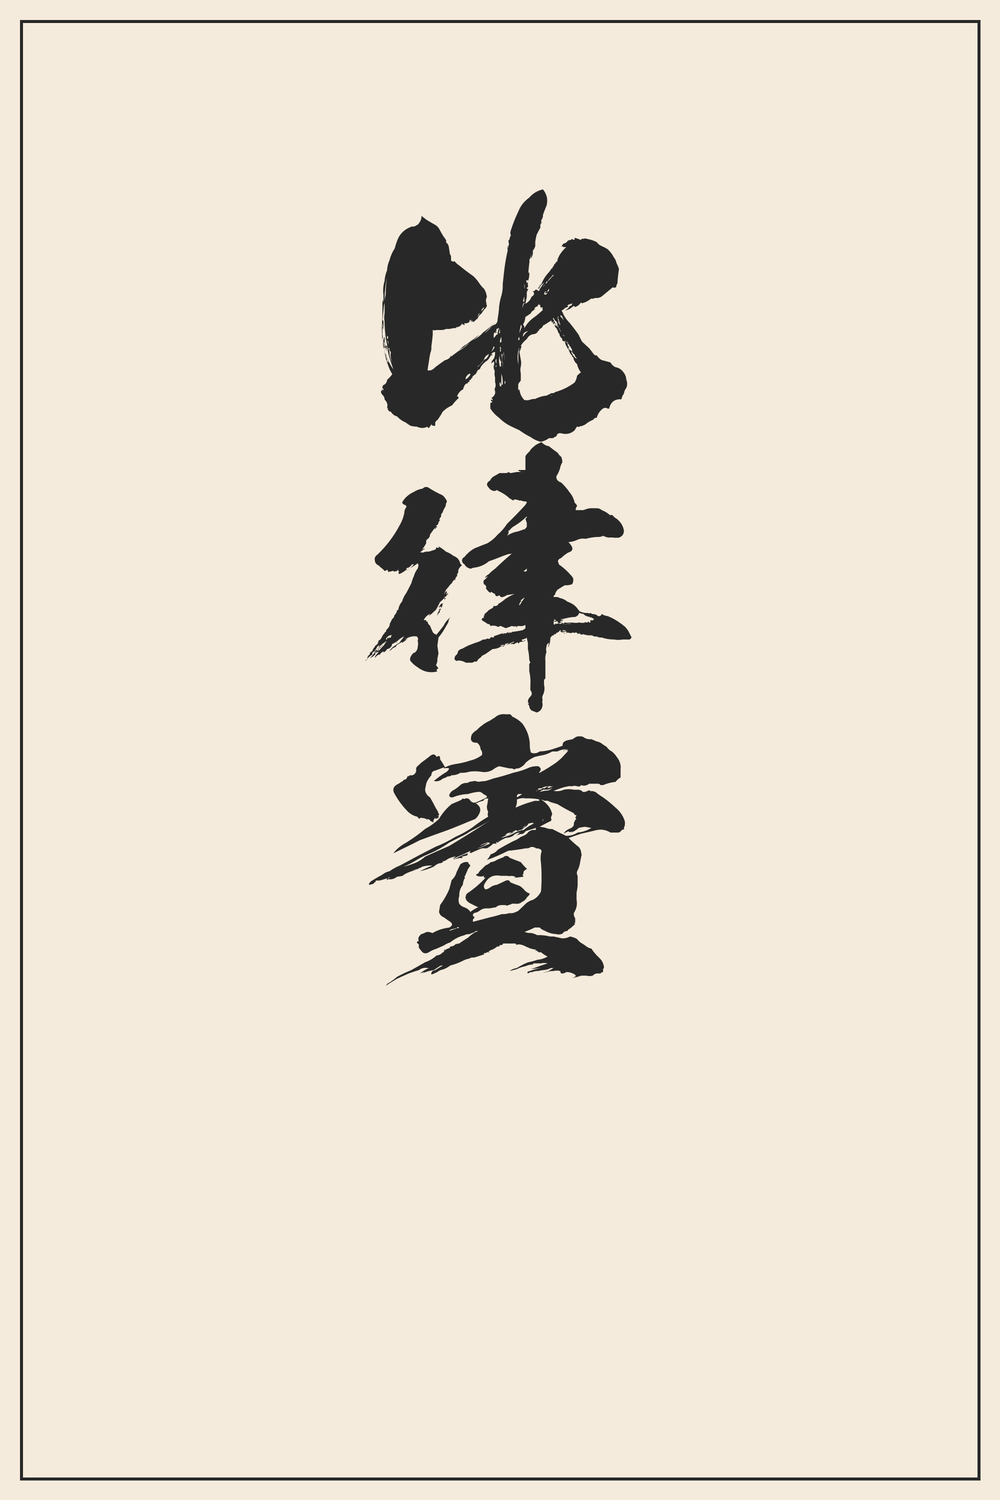 比律賓